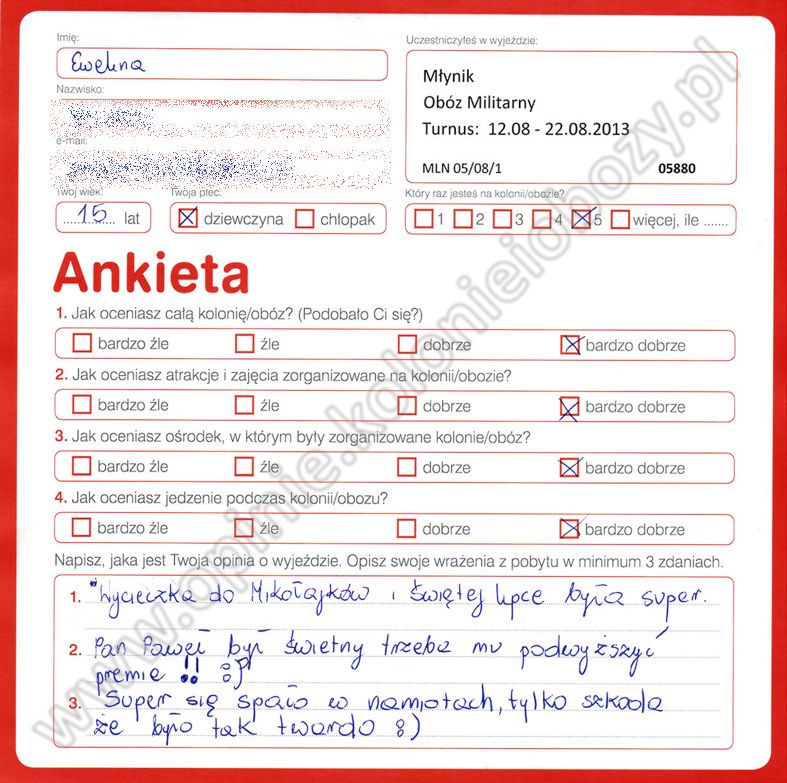 Imię:
Ewelina
Nazwisko:
e-mail:
Twój wiek:
15 lat
Twoja płeć:
dziewczyna chłopak
Uczestniczyłeś w wyjeździe:
Młynik
Obóz Militarny
Turnus: 12.08 - 22.08.2013
MLN 05/08/1 05880
Który raz jesteś na kolonii/obozie?
1 2 3 4 5 więcej, ile .......
Ankieta
1. Jak oceniasz całą kolonię/obóz? (Podobało Ci się?)
bardzo źle źle dobrze bardzo dobrze
2. Jak oceniasz atrakcje i zajęcia zorganizowane na kolonii/obozie?
bardzo źle źle dobrze bardzo dobrze
3. Jak oceniasz ośrodek, w którym były zorganizowane kolonie/obóz?
bardzo źle źle dobrze bardzo dobrze
4. Jak oceniasz jedzenie podczas kolonii/obozu?
bardzo źle źle dobrze bardzo dobrze
Napisz, jaka jest Twoja opinia o wyjeździe. Opisz swoje wrażenia z pobytu w minimum 3 zdaniach.
1. Wycieczka do Mikołajków i Świętej Lipce była super.
2. Pan Paweł był świetny trzeba mu podwyższyć
premie !! :)
3. Super się spało w namiotach, tylko szkoda
że było tak twardo :)
www.opinie.kolonieiobozy.pl